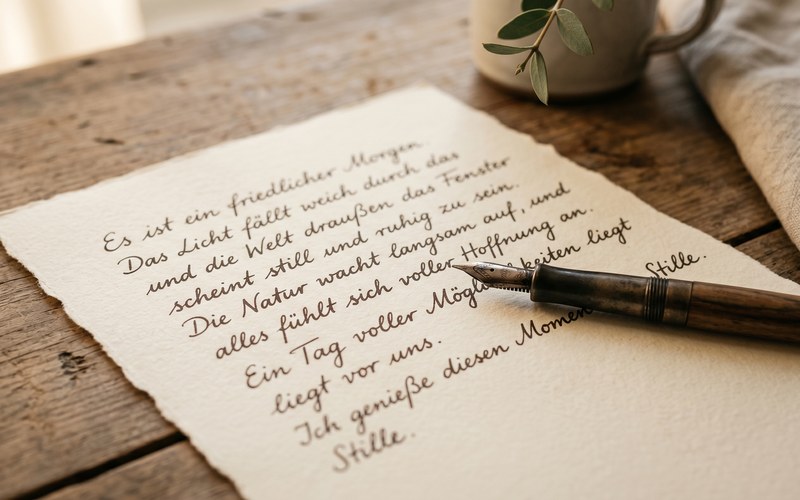 Es ist ein friedlicher Morgen.
Das Licht fällt weich durch das
und die Welt draußen das Fenster
scheint still und ruhig zu sein.
Die Natur wacht langsam auf, und
alles fühlt sich voller Hoffnung an.
Ein Tag voller liegt
liegt vor uns.
Ich genieße diesen Stille.
Stille.